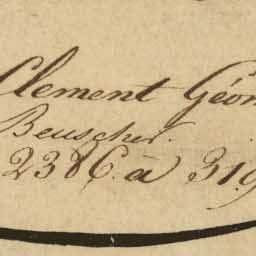 Clement Géom
Beuscher.
238C. à 319